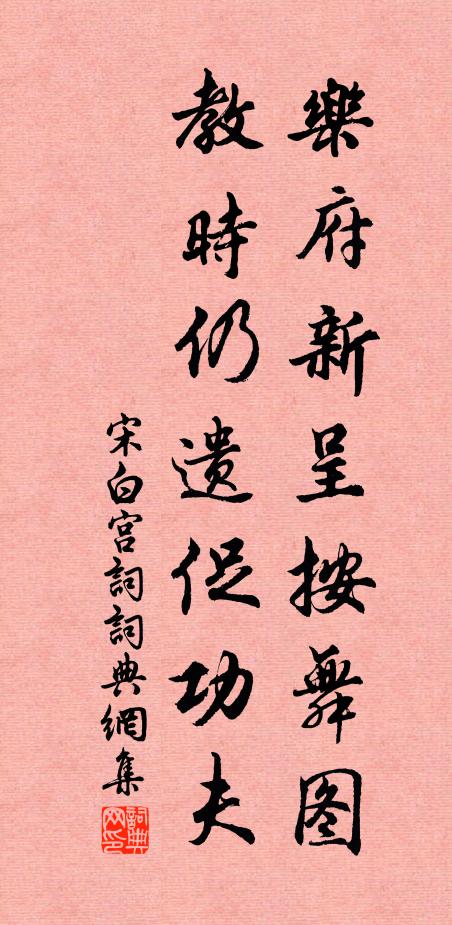 樂府新呈按舞图
教時仍遗促功夫
宋白宫詞詞典網集
詞典网印